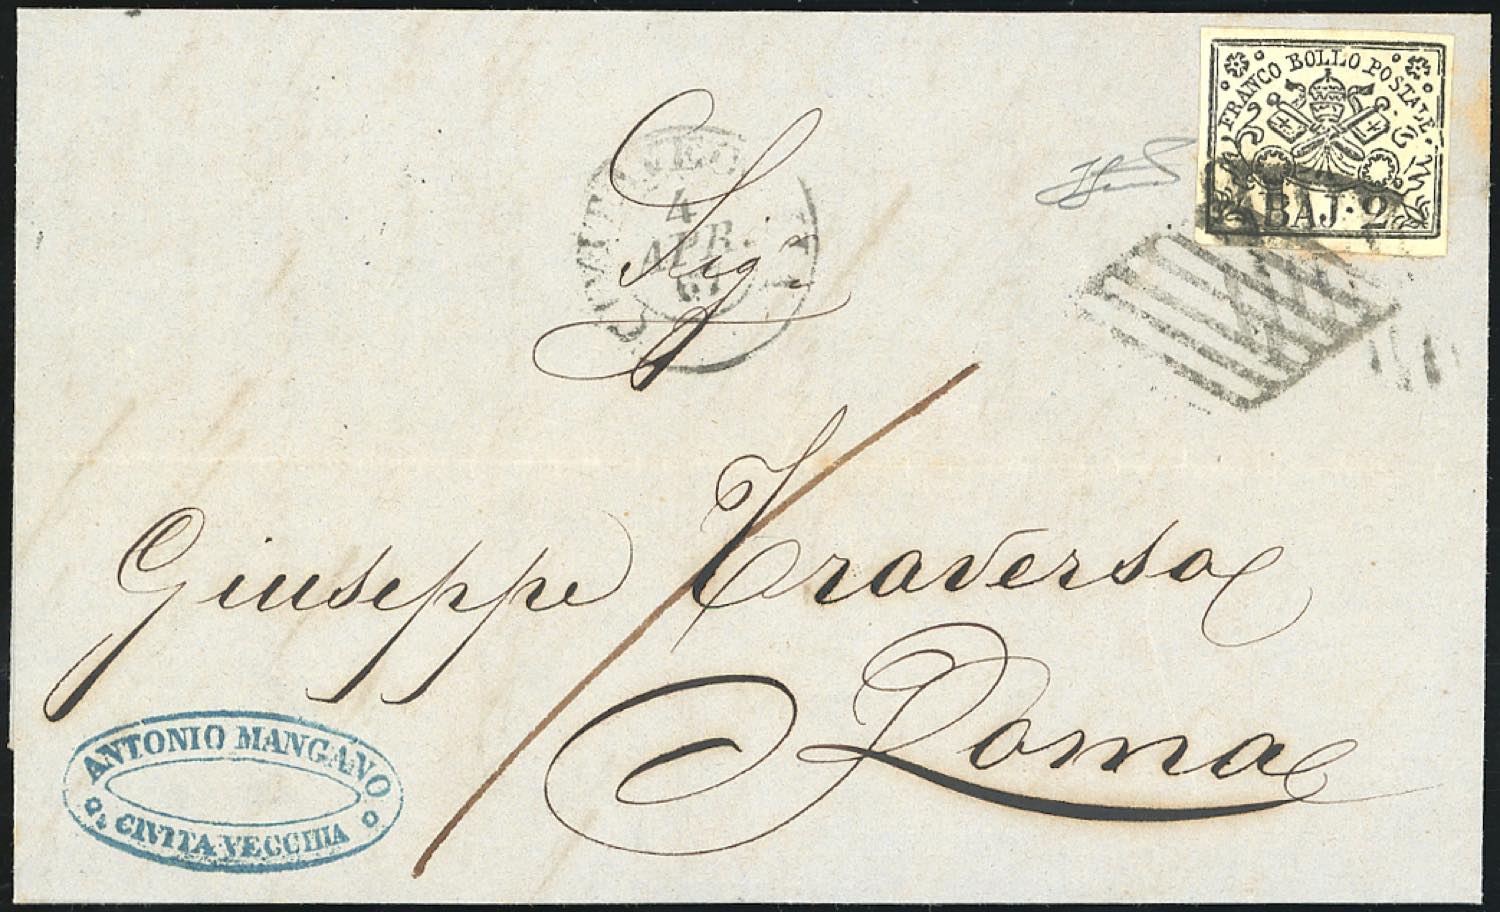 FRANCO BOLLO POSTALE
BAJ. 2
CIVITAVECCHIA
4
APR.
67
Sig.
Giuseppe Traversa
Roma
ANTONIO MANGANO
CIVITA-VECCHIA